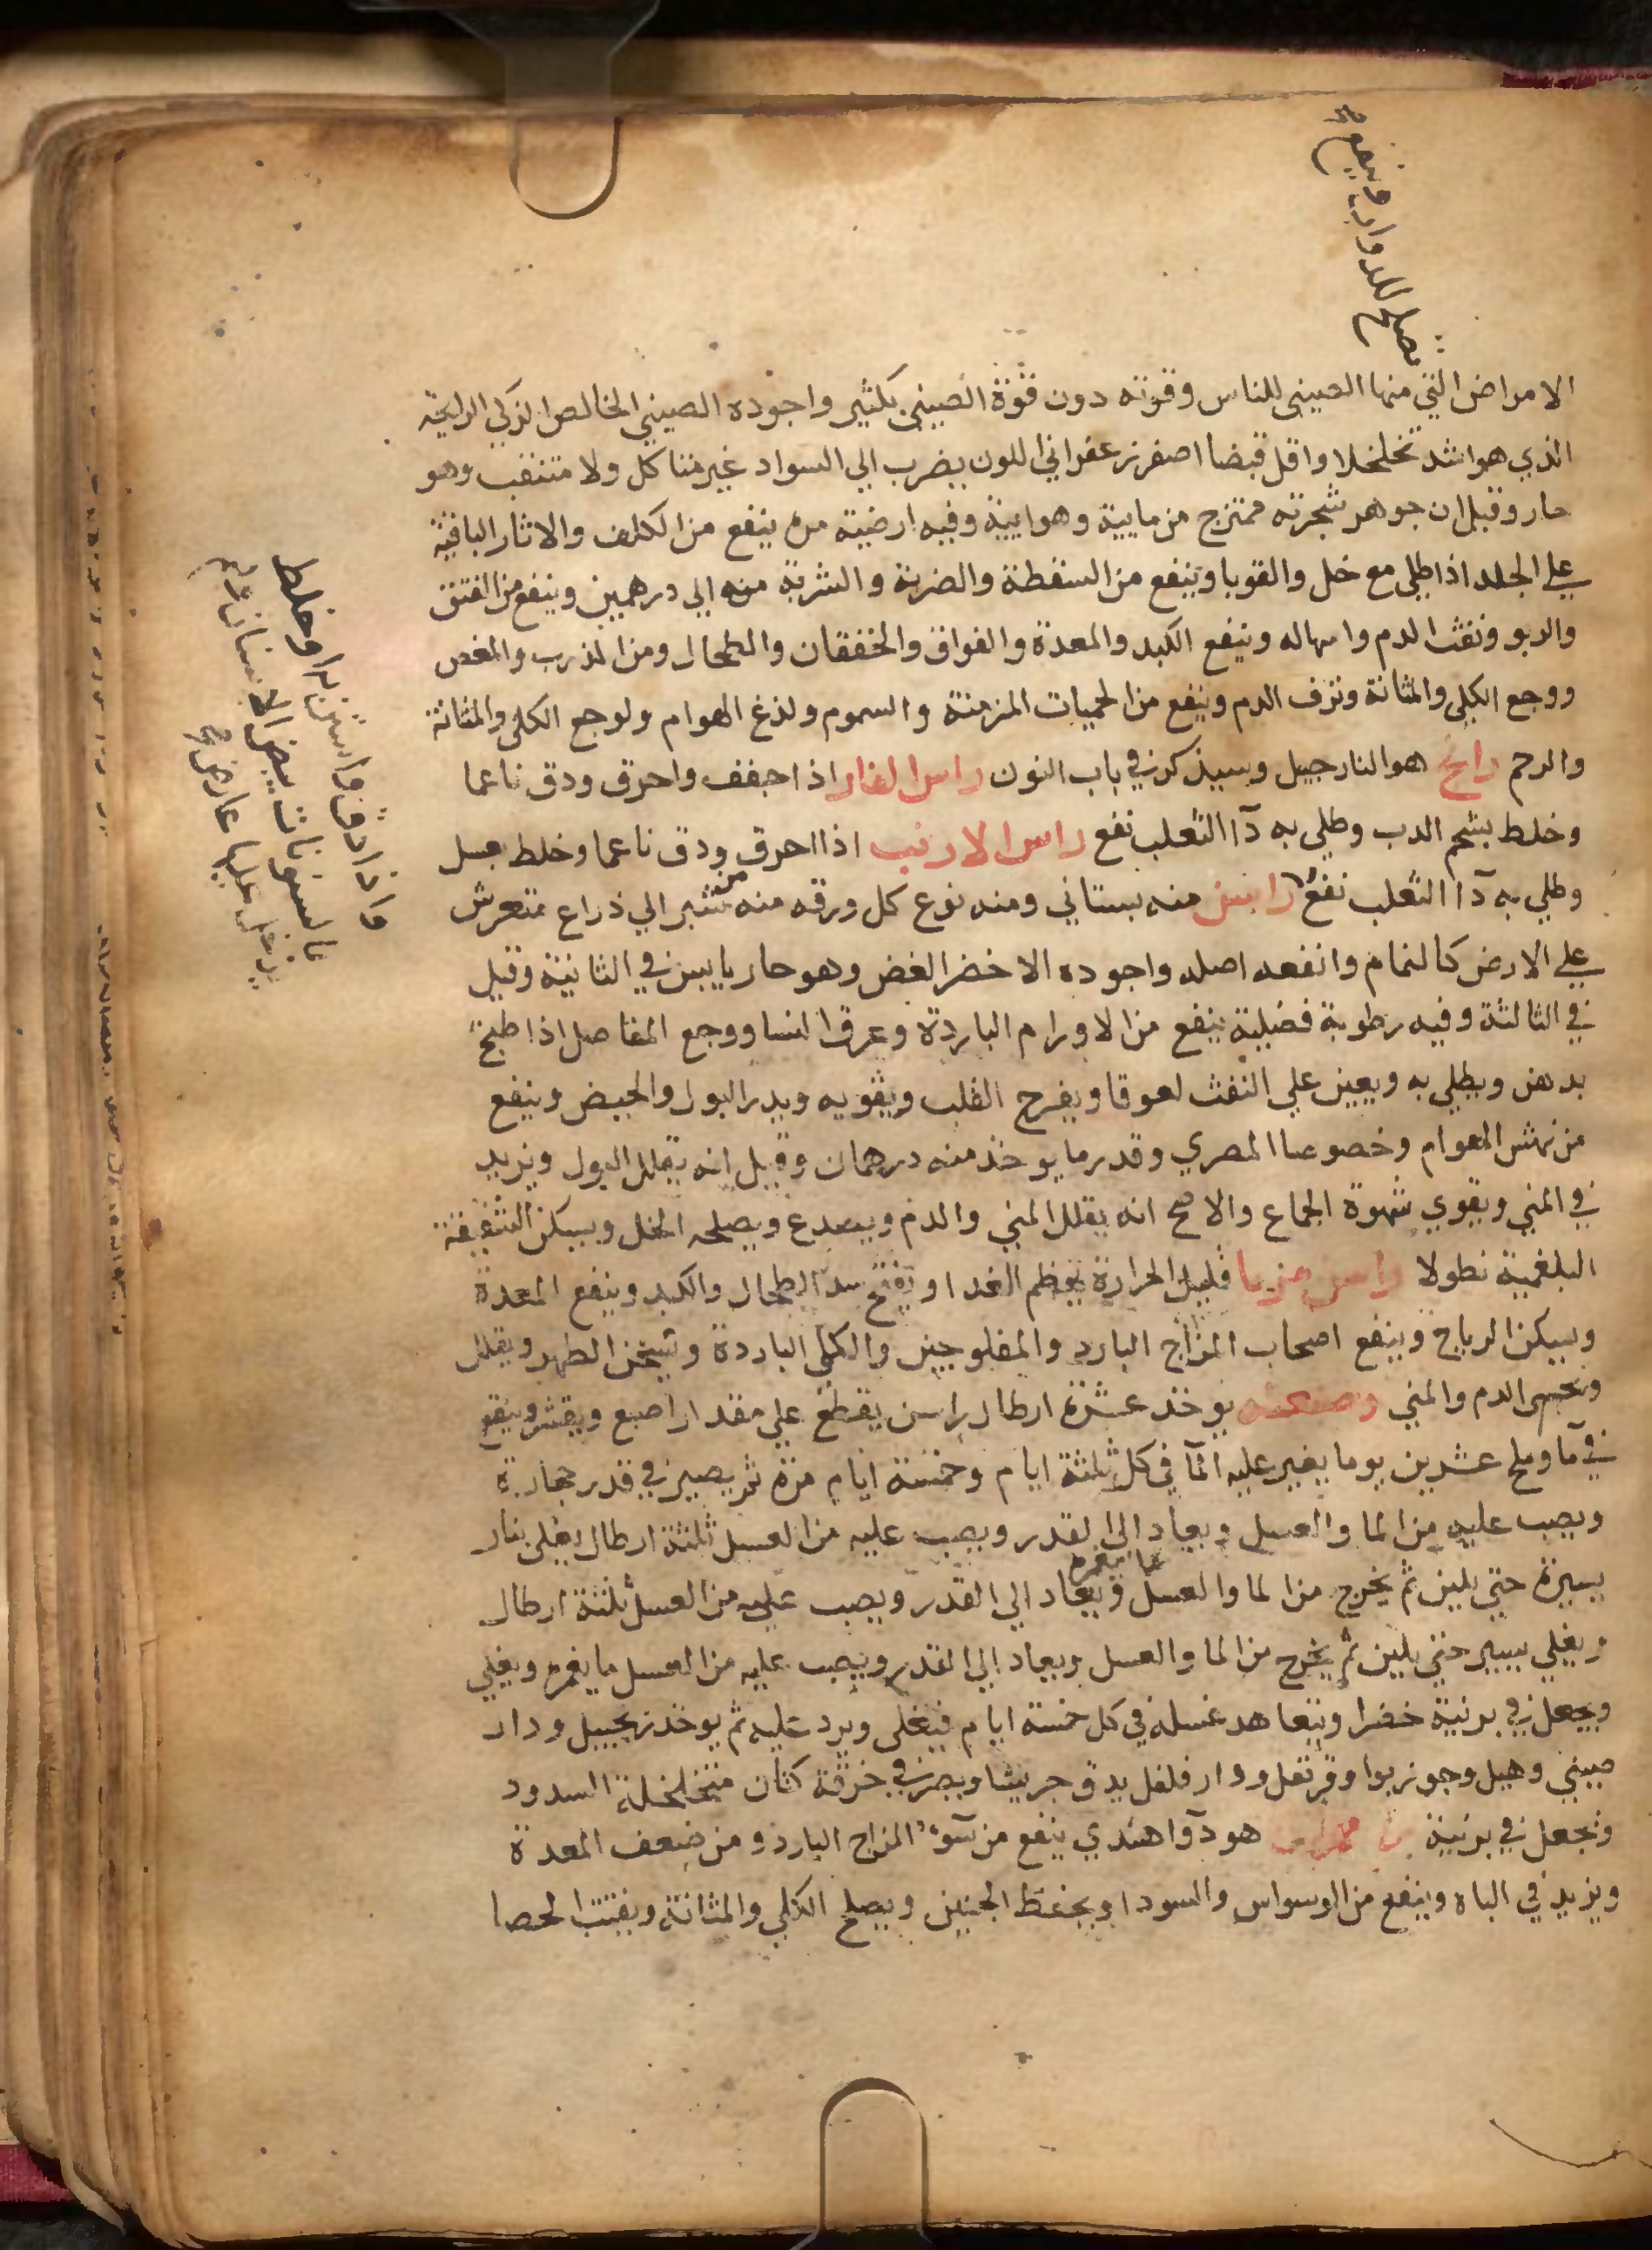 يصلح للدوار وينفع
الامراض التي منها الصيني للناس وقوته دون قوة الصيني بكثير واجوده الصيني الخالص الزكي الرايحة
الذي هو اشد تخلخلا واقل قبضا اصفر زعفراني اللون يضرب الي السواد غير متاكل ولا متثقب وهو
حار وقيل ان جوهر شجرته ممتزج من مايية وهوايية وفيه ارضية مرة ينفع من الكلف والاثار الباقية
علي الجلد اذا طلي مع خل والقوبا وينفع من السقطة والضربة والشربة منه الي درهمين وينفع من الفتق
والربو ونفث الدم واسهاله وينفع الكبد والمعدة والفواق والخفقان والطحال ومن الذرب والمغص
ووجع الكلي والمثانة ونزف الدم وينفع من الحميات المزمنة والسموم ولذغ الهوام ولوجع الكلي والمثانة
والرحم رانج هو النارجيل وسيذكر في باب النون راس الفار اذا اجفف واحرق ودق ناعما
وخلط بشحم الدب وطلي به دآ الثعلب نفع راس الارنب اذا احرق ودق ناعما وخلط بعسل
وطلي به دآ الثعلب نفع راسن منه بستاني ومنه نوع كل ورقه منه من شبر الي ذراع متعرش
علي الارض كالنمام وانفعه اصله واجوده الاخضر الغض وهو حار يابس في الثانية وقيل
في الثالثة وفيه رطوبة فضلية ينفع من الاورام الباردة وعرق النسا ووجع المفاصل اذا طبخ
بدهن ويطلي به ويعين علي النفث لعوقا ويفرح القلب ويقويه ويدر البول والحيض وينفع
من نهش الهوام وخصوصا المصري وقدر ما يوخذ منه درهمان وقيل انه يقلل البول ويزيد
في المني ويقوي شهوة الجماع والاصح انه يقلل المني والدم ويصدع ويصلحه الخل ويسكن الشقيقة
البلغمية نطولا راسن مربا قليل الحرارة يهظم الغدا ويفتح سدد الطحال والكبد وينفع المعدة
ويسكن الرياح وينفع اصحاب المزاج البارد والمفلوجين والكلي الباردة ويسخن الظهر ويقلل
الدم والمني وصنعته يوخذ عشرة ارطال راسن يقطع علي مقدار اصبع ويقشر وينقع
في مآ وملح عشرين يوما يغير عليه المآ في كل ثلثة ايام وخمسة ايام مرة ثم يصير في قدر حجارة
ويصب عليه من الما والعسل ويعاد الي القدر ويصب عليه من العسل ثلثة ارطال يغلي بنار
يسيرة حتي يلين ثم يخرج من الما والعسل ما يغمره ويعاد الي القدر ويصب عليه من العسل ثلثة ارطال
ويغلي يسير حتي يلين ثم يخرج من الما والعسل ويعاد الي القدر ويصب عليه من العسل ما يغمره ويغلي
ويجعل في برنية خضرا ويتعاهد غسله في كل خمسة ايام فيغلي ويرد عليه ثم يوخذ زنجبيل ودار
صيني وهيل وجوزبوا وقرنفل ودار فلفل يدق جريشا ويصر في خرقة كتان متخلخلة السدود
ويجعل في برنية هو دوآ هندي ينفع من سوء المزاج البارد ومن ضعف المعدة
ويزيد في الباه وينفع من الوسواس والسودا ويحفظ الجنين ويصلح الكلي والمثانة ويفتت الحصا